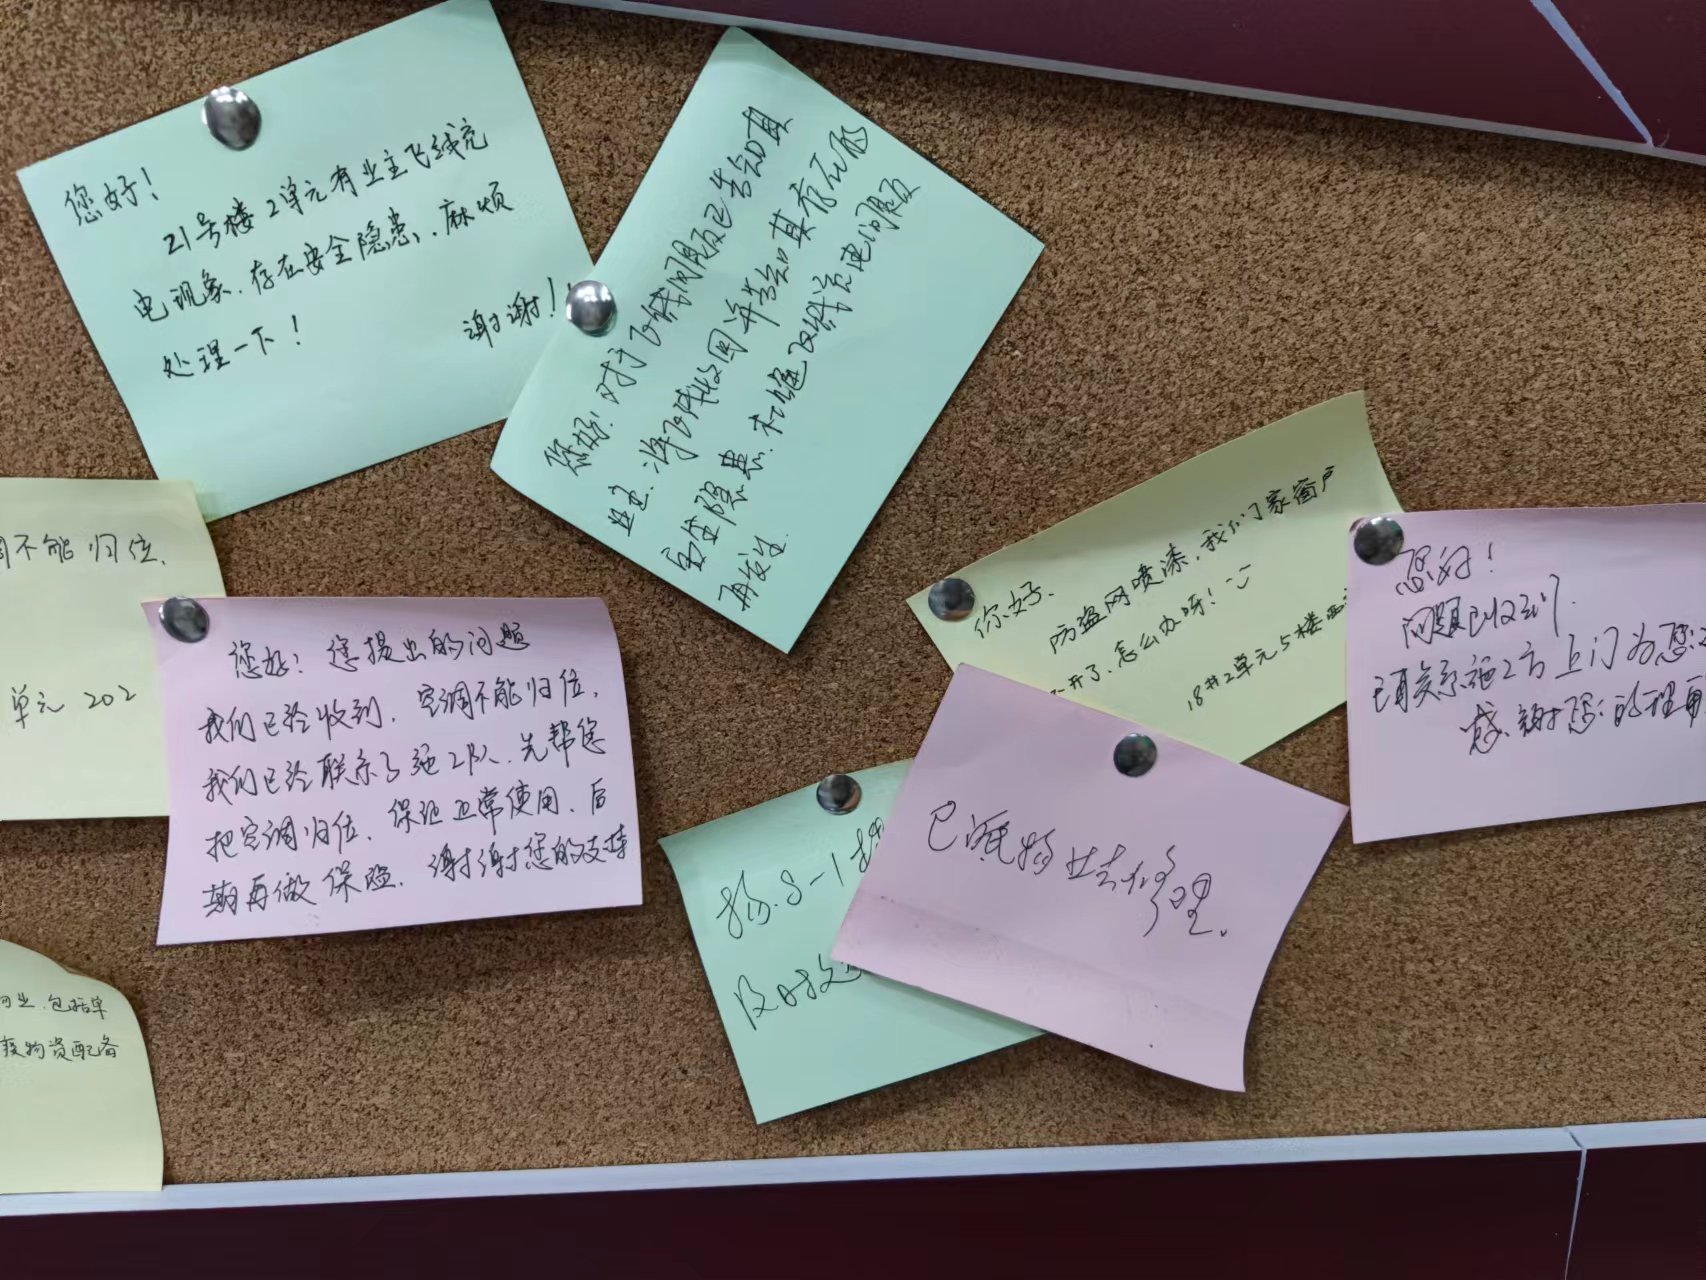 您好！
21号楼2单元有业主飞线充
电现象，存在安全隐患，麻烦
处理一下！
谢谢！
您好！对于飞线问题已告知其
业主，将飞线收回并告知其存在的
安全隐患，杜绝飞线充电问题
再发生
不能归位，
单元 202
您好！您提出的问题
我们已经收到，空调不能归位，
我们已经联系了施工队，先帮您
把空调归位，保证正常使用，后
期再做保险，谢谢您的支持
你好，
防盗网喷漆，我们家窗户
开了，怎么办呀！
18#2单元5楼西
您好！
问题已收到，
联系施工方上门为您
感谢您的理
8-1
及时
已派物业去修理。
业，包括单
物资配备